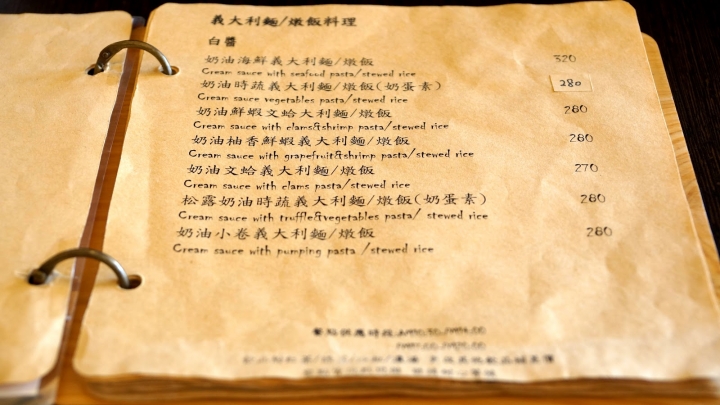 義大利麵/燉飯料理
白醬
奶油海鮮義大利麵/燉飯 320
Cream sauce with seafood pasta/stewed rice
奶油時蔬義大利麵/燉飯(奶蛋素) 280
Cream sauce vegetables pasta/stewed rice
奶油鮮蝦文蛤義大利麵/燉飯 280
Cream sauce with clams&shrimp pasta/stewed rice
奶油柚香鮮蝦義大利麵/燉飯 280
Cream sauce with grapefruit&shrimp pasta/stewed rice
奶油文蛤義大利麵/燉飯 270
Cream sauce with clams pasta/stewed rice
松露奶油時蔬義大利麵/燉飯(奶蛋素) 280
Cream sauce with truffle&vegetables pasta/ stewed rice
奶油小卷義大利麵/燉飯 280
Cream sauce with pumping pasta /stewed rice
餐點供應時段: